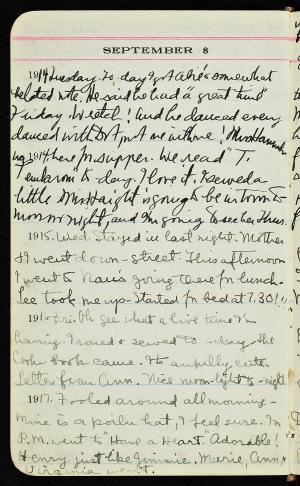 SEPTEMBER 8
1914 Tuesday. To-day I got Alie's somewhat
belated note. He said he had a "great time"
Friday. Wretch! And he danced every
danced with D.A, not me in there! Miss
1914 here for supper. We read "T.
Tembarom" to-day. I love it. I sewed a
little. Miss Haight is going to be in town to-
morrow night, and I'm going to see her Thurs.
1915. Wed. Stayed in last night. Mother
& I went down-street this afternoon
I went to Nan's going there for lunch.
See took me up- Started for bed at 7.30!"
1916 Fri. Oh gee what a live time I'm
having. I read & sewed to-day. The
Cook book came. It's awfully cute
Letter from Ann. Nice moon-light to-night
1917. Fooled around all morning-
mine is a poilu hat, I feel sure. In
P.M. went to "Have a Heart. Adorable!
Henry just like Jimmie. Marie, Ann, &
Virginia went.